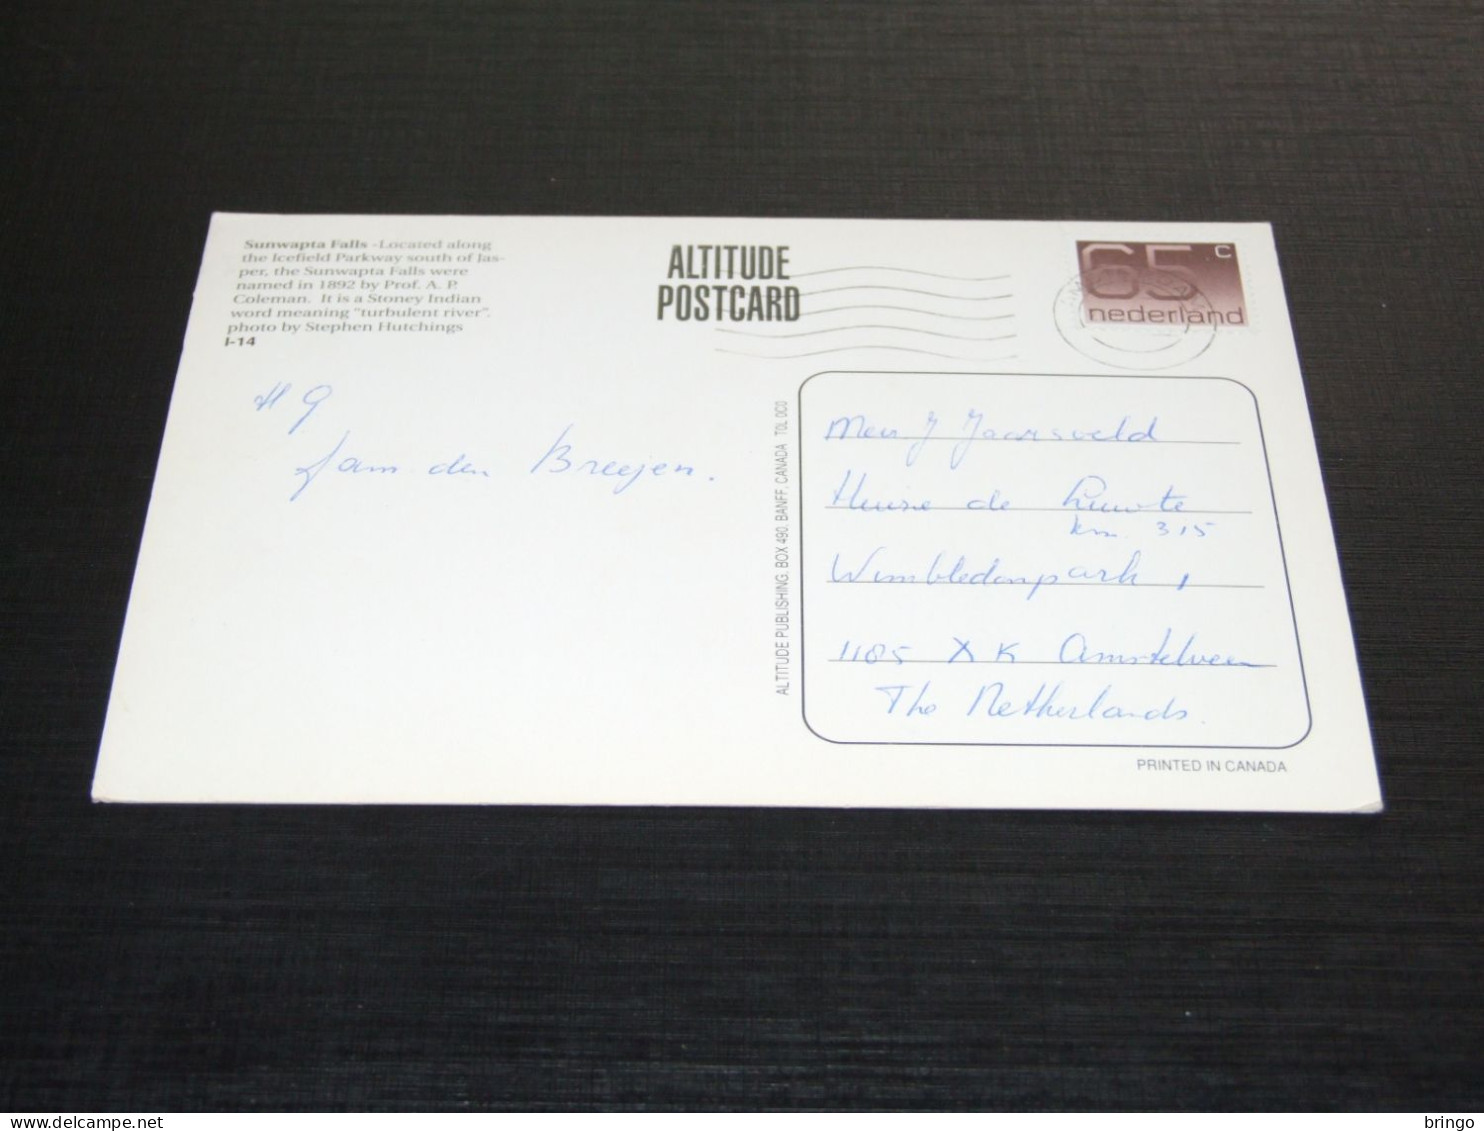 Sunwapta Falls -Located along
the Icefield Parkway south of Jas-
per, the Sunwapta Falls were
named in 1892 by Prof. A. P.
Coleman. It is a Stoney Indian
word meaning "turbulent river".
photo by Stephen Hutchings
I-14
ALTITUDE
POSTCARD
65 c
nederland
H G
Jam den Breejen.
ALTITUDE PUBLISHING, BOX 490, BANFF, CANADA T0L 0C0
Mevr J Jaarsveld
Huize de
km 315
Wimbledonpark 1
1185 XK Amstelveen
The Netherlands.
PRINTED IN CANADA
bringo